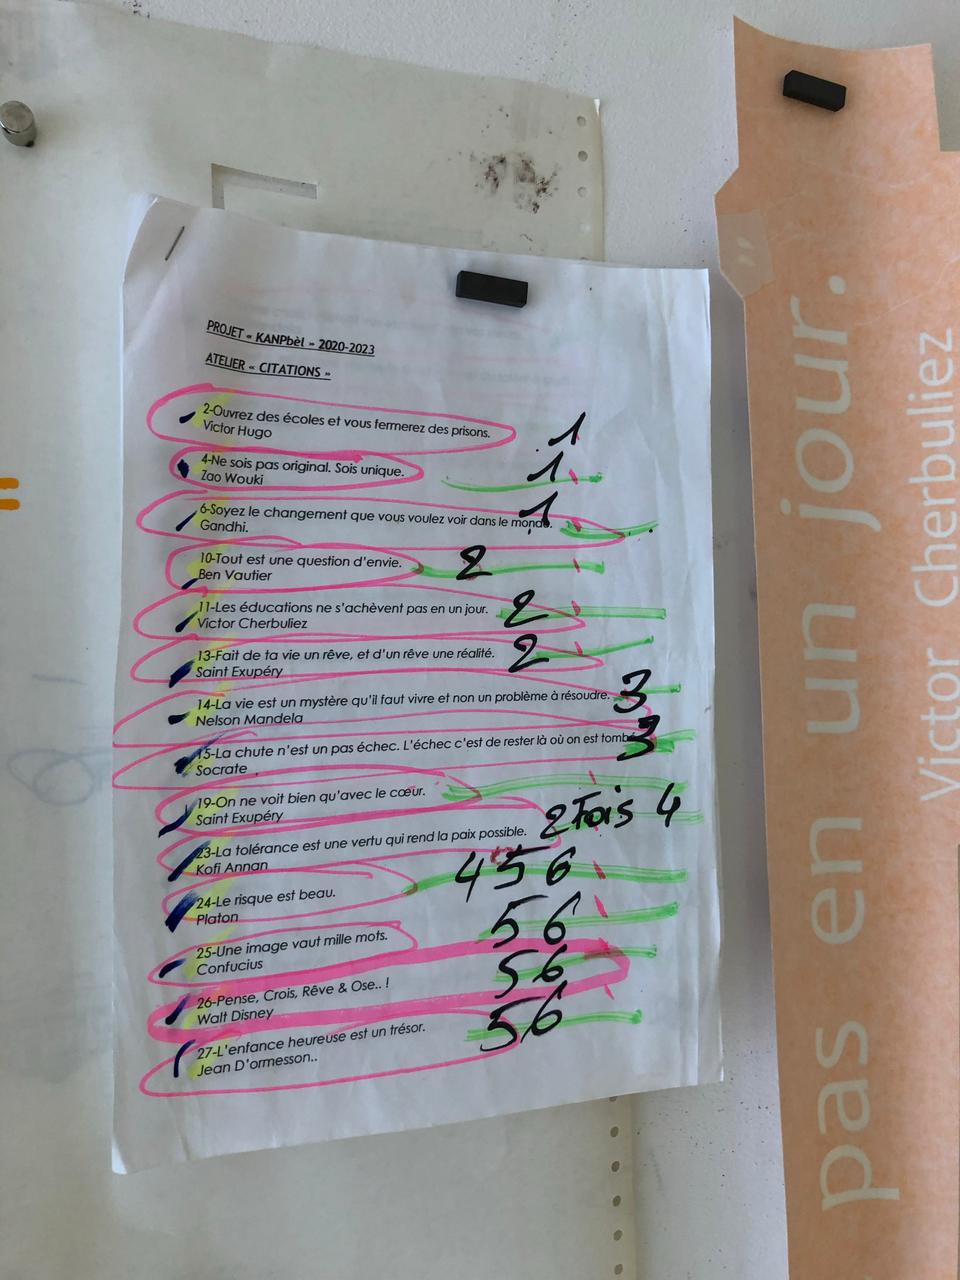 PROJET « KANPbèl » 2020-2023
ATELIER « CITATIONS »
2-Ouvrez des écoles et vous fermerez des prisons. 1
Victor Hugo
4-Ne sois pas original. Sois unique. 1
Zao Wouki
6-Soyez le changement que vous voulez voir dans le monde. 1
Gandhi.
10-Tout est une question d'envie. 2
Ben Vautier
11-Les éducations ne s'achèvent pas en un jour. 2
Victor Cherbuliez
13-Fait de ta vie un rêve, et d'un rêve une réalité. 2
Saint Exupéry
14-La vie est un mystère qu'il faut vivre et non un problème à résoudre. 3
Nelson Mandela
15-La chute n'est un pas échec. L'échec c'est de rester là où on est tombé 3
Socrate
19-On ne voit bien qu'avec le cœur.
Saint Exupéry
23-La tolérance est une vertu qui rend la paix possible. 2 Fois 4
Kofi Annan
24-Le risque est beau. 4 5 6
Platon
25-Une image vaut mille mots. 5 6
Confucius
26-Pense, Crois, Rêve & Ose.. ! 5 6
Walt Disney
27-L'enfance heureuse est un trésor. 5 6
Jean D'ormesson..
pas en un jour. ”
Victor Cherbuliez